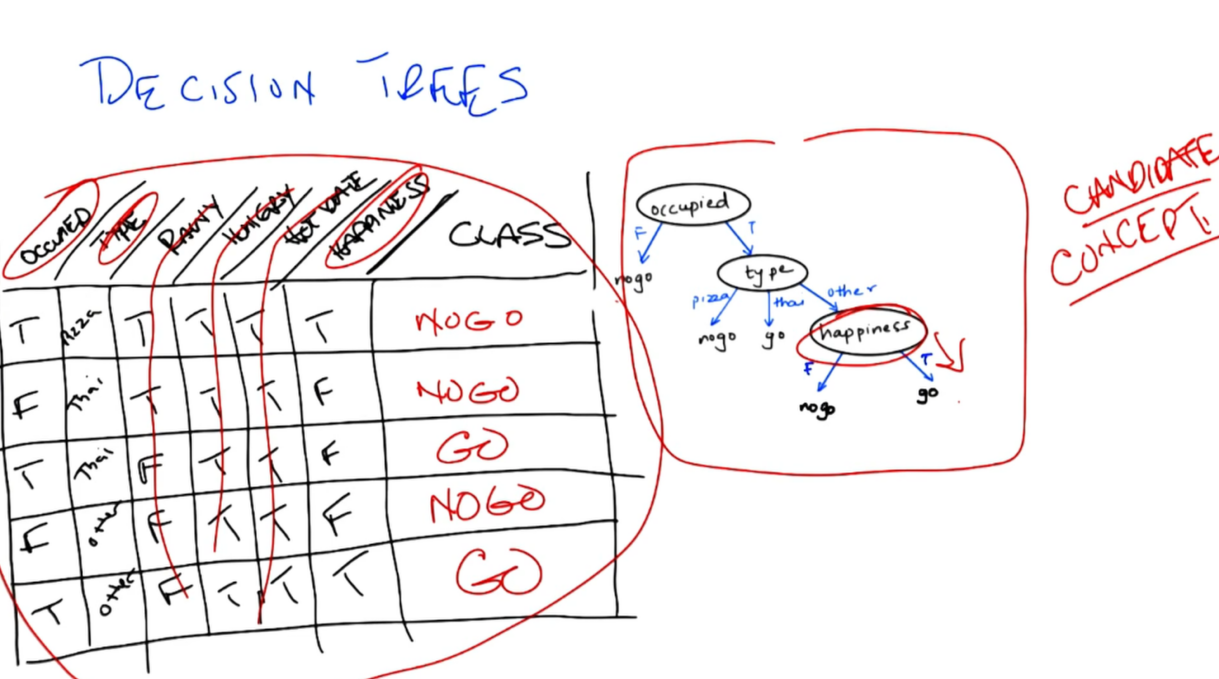 DECISION TREES
CANDIDATE
CONCEPT!
OCCUPIED TYPE RAINY HUNGRY HOT DATE HAPPINESS CLASS
T Pizza T T T T NOGO
F Thai T T T F NOGO
T Thai F T T F GO
F Other F T T F NOGO
T Other F T T T GO
occupied
F T
nogo type
pizza thai other
nogo go happiness
F T
nogo go